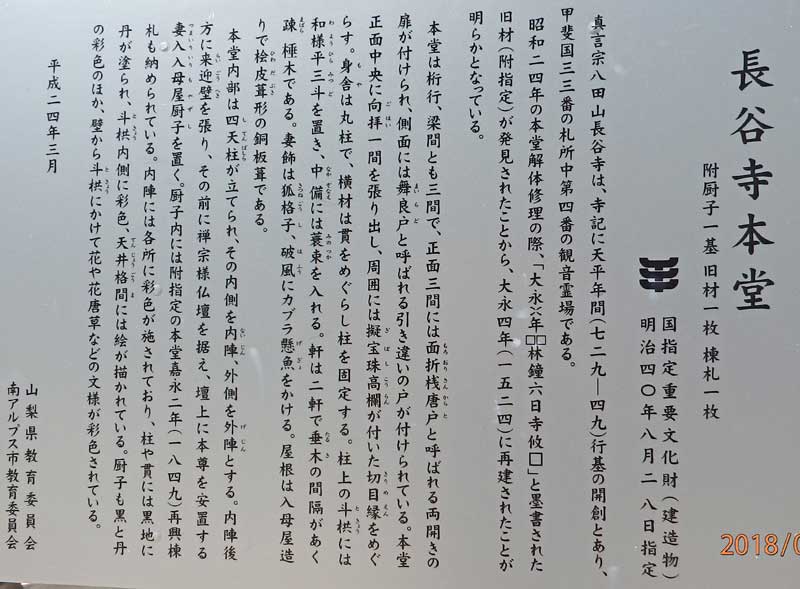 長谷寺本堂
附厨子一基 旧材一枚 棟札一枚
国指定重要文化財(建造物)
明治四〇年八月二八日指定
真言宗八田山長谷寺は、寺記に天平年間(七二九―四九)行基の開創とあり、
甲斐国三三番の札所中第四番の観音霊場である。
昭和二四年の本堂解体修理の際、「大永㐅年□□林鐘六日寺攸□」と墨書された
旧材(附指定)が発見されたことから、大永四年(一五二四)に再建されたことが
明らかとなっている。
本堂は桁行、梁間とも三間で、正面三間には面折桟唐戸と呼ばれる両開きの
扉が付けられ、側面には舞良戸と呼ばれる引き違いの戸が付けられている。本堂
正面中央に向拝一間を張り出し、周囲には擬宝珠高欄が付いた切目縁をめぐ
らす。身舎は丸柱で、横材は貫をめぐらし柱を固定する。柱上の斗栱には
和様平三斗を置き、中備には蓑束を入れる。軒は二軒で垂木の間隔があく
疎棰木である。妻飾は狐格子、破風にカブラ懸魚をかける。屋根は入母屋造
りで桧皮葺形の銅板葺である。
本堂内部は四天柱が立てられ、その内側を内陣、外側を外陣とする。内陣後
方に来迎壁を張り、その前に禅宗様仏壇を据え、壇上に本尊を安置する
妻入入母屋厨子を置く。厨子内には附指定の本堂嘉永二年(一八四九)再興棟
札も納められている。内陣には各所に彩色が施されており、柱や貫には黒地に
丹が塗られ、斗栱内側に彩色、天井格間には絵が描かれている。厨子も黒と丹
の彩色のほか、壁から斗栱にかけて花や花唐草などの文様が彩色されている。
平成二四年三月
山梨県教育委員会
南アルプス市教育委員会
2018/0